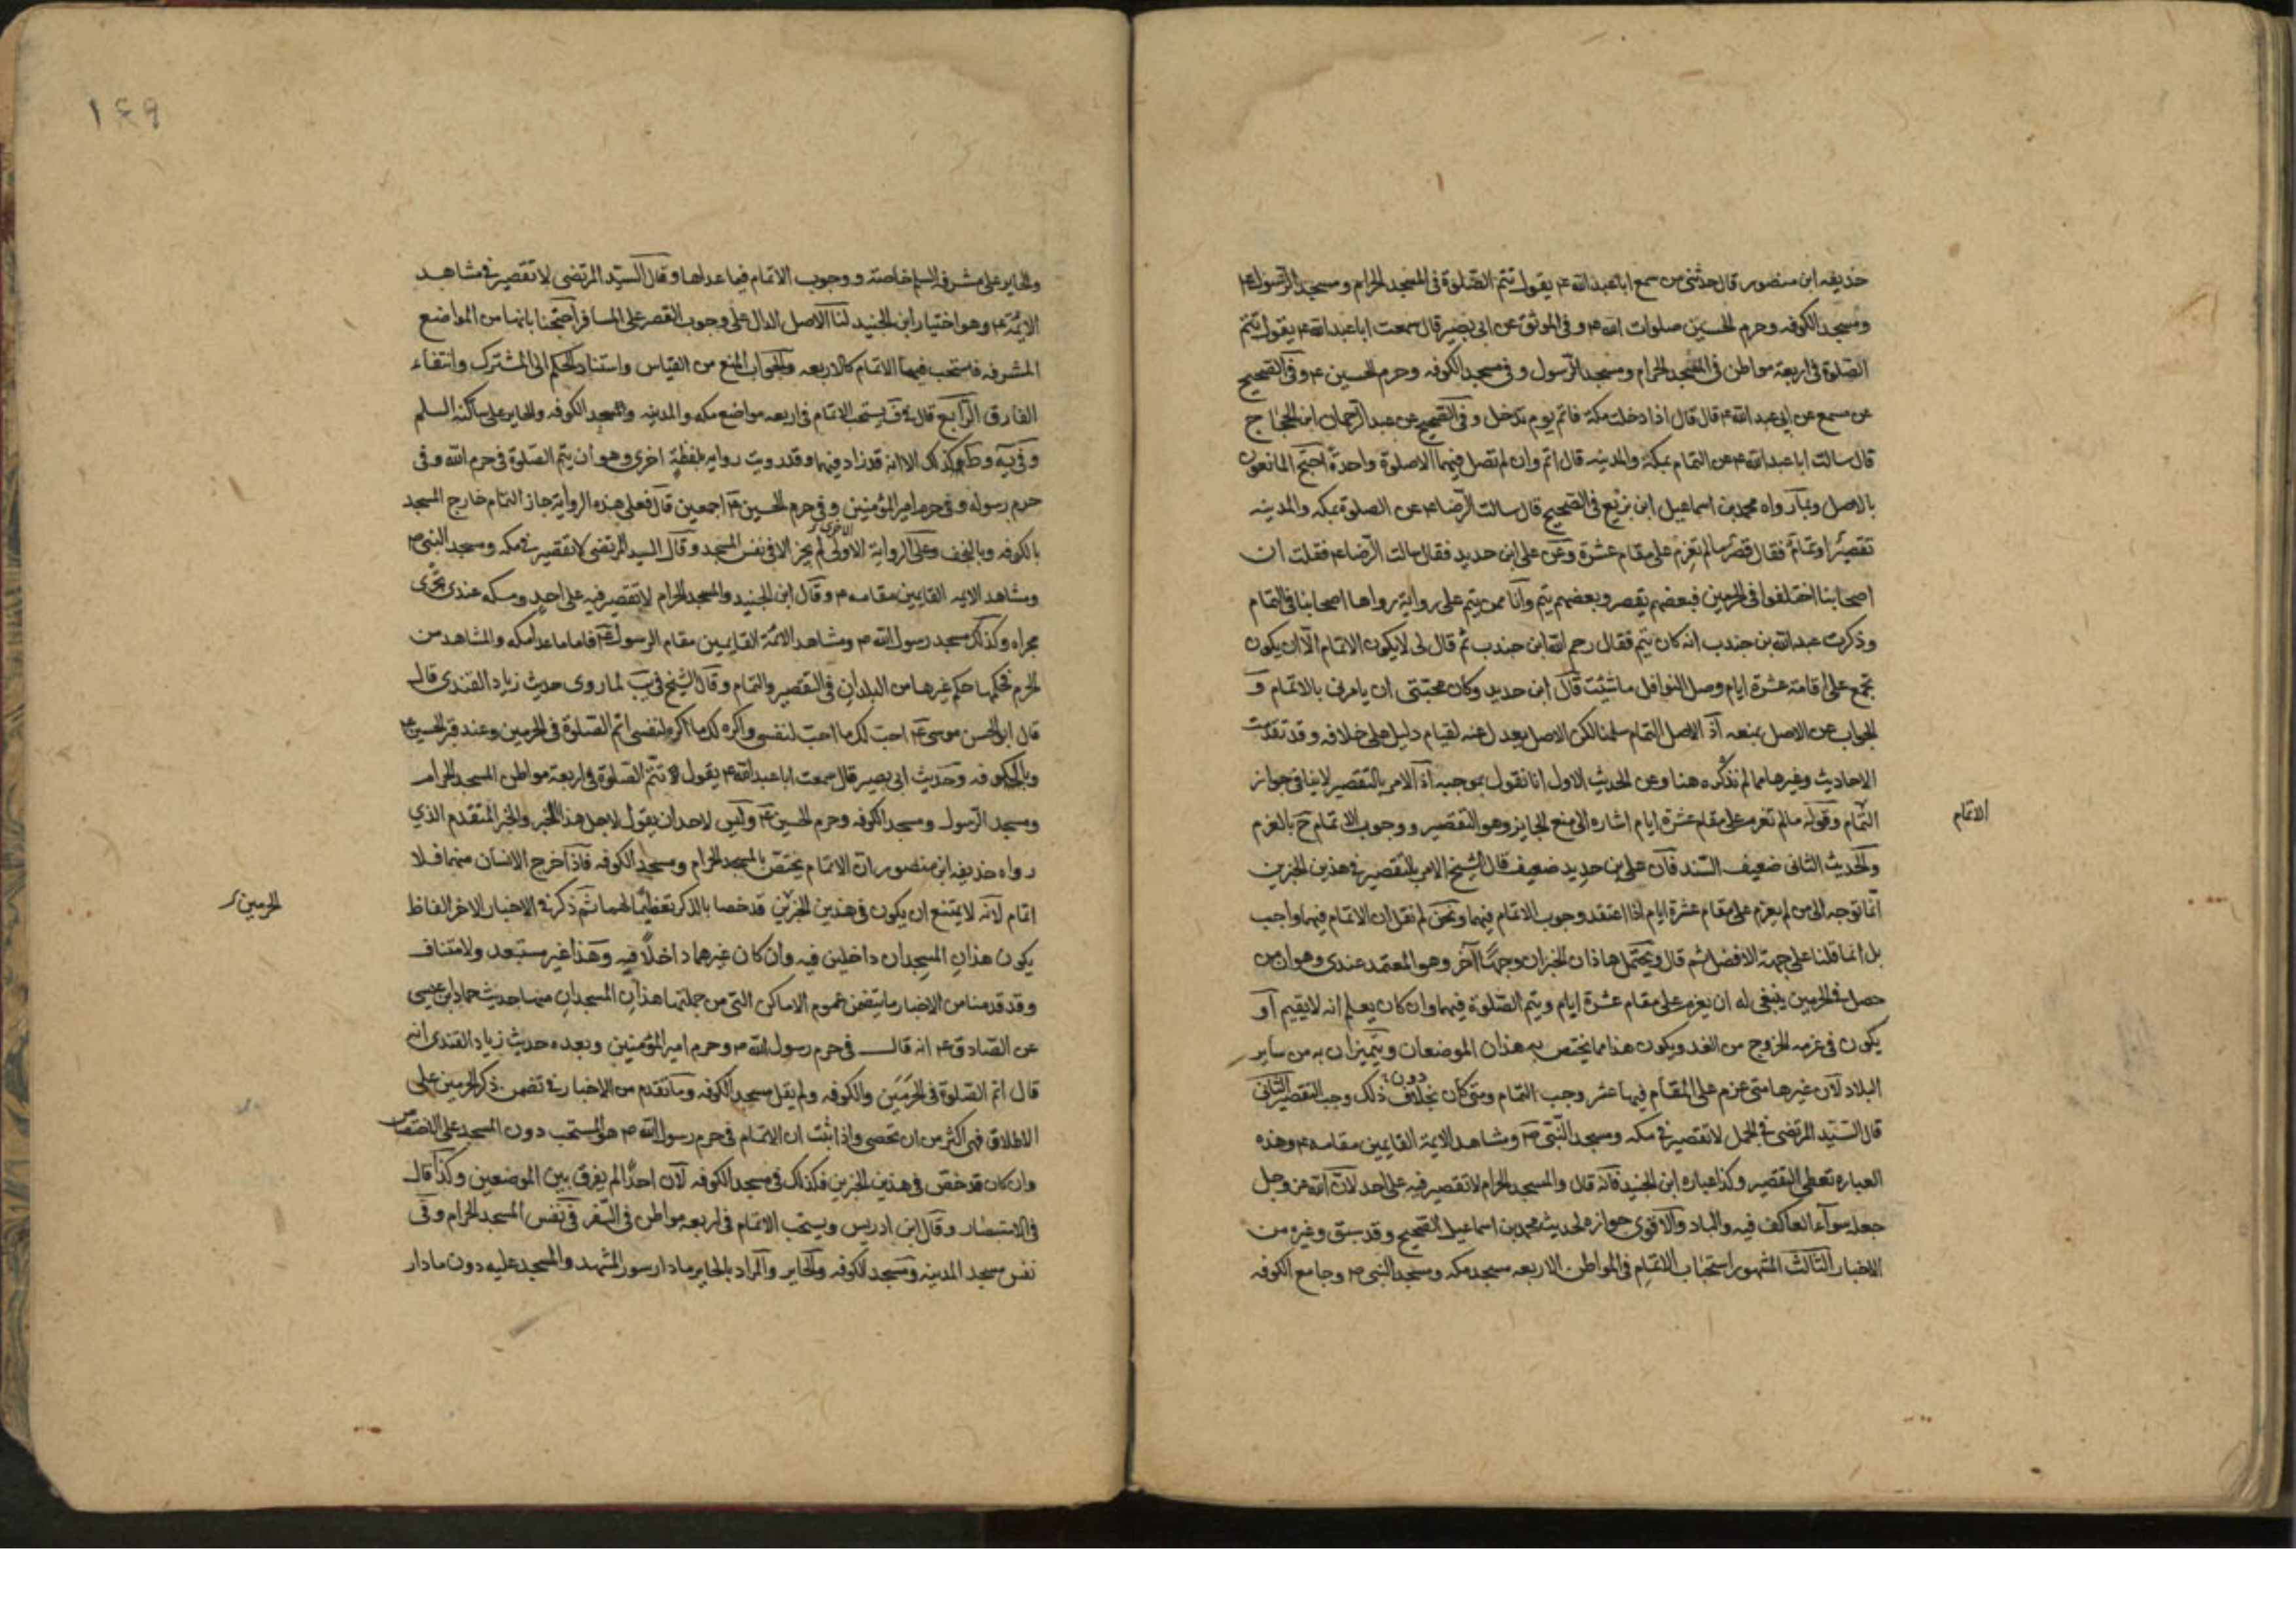 حذيفه ابن منصور قال حدثنى من سمع ابا عبد الله ع يقول تتم الصلوة فى المسجد الحرام ومسجد الرسول ع
ومسجد الكوفه وحرم الحسين صلوات الله ع وفى الموثق عن ابى بصير قال سمعت ابا عبد الله ع يقول تتم
الصلوة فى اربعة مواطن فى المسجد الحرام ومسجد الرسول وفى مسجد الكوفه وحرم الحسين ع وفى الصحيح
عن مسمع عن ابى عبد الله ع قال قال اذا دخلت مكة فاتم يوم تدخل وفى الصحيح عن عبد الرحمان ابن الحجاج
قال سالت ابا عبد الله ع عن التمام بمكة والمدينه قال اتم وان لم تصل فيهما الا صلوة واحدة احتج المانعون
بالاصل وبما رواه محمد بن اسماعيل ابن بزيع فى الصحيح قال سالت الرضا ع عن الصلوة بمكه والمدينه
تقصير او تمام فقال قصر ما لم تعزم على مقام عشرة وعن على ابن حديد فقال سالت الرضا ع فقلت ان
اصحابنا اختلفوا فى الحرمين فبعضهم يقصر وبعضهم يتم وانا ممن يتم على رواية رواها اصحابنا فى التمام
وذكرت عبد الله بن جندب انه كان يتم فقال رحم الله ابن جندب ثم قال لى لا يكون الاتمام الا ان يكون
تجمع على اقامة عشرة ايام وصل النوافل ما شئت قال ابن حديد وكان محبتى ان يامرنى بالاتمام و
الجواب عن الاصل بمنعه اذ الاصل التمام سلمنا لكن الاصل يعدل عنه لقيام دليل على خلافه وقد تقدمت
الاحاديث وغيرها مما لم نذكره هنا وعن الحديث الاول انا نقول بموجبه اذ الامر بالتقصير لا ينافى جواز
التمام وقوله ما لم تعزم على مقام عشرة ايام اشاره الى منع الجايز وهو التقصير ووجوب الاتمام ح بالعزم
الاتمام
والحديث الثانى ضعيف السند فان على بن حديد ضعيف قال الشيخ الامر بالتقصير فى هذين الخبرين
انما توجه الى من لم يعزم على مقام عشرة ايام اذا اعتقد وجوب الاتمام فيهما ونحن لم نقل ان الاتمام فيهما واجب
بل انما قلنا على جهة الافضل ثم قال ويحتمل هاذان الخبران وجها آخر وهو المعتمد عندى وهو ان من
حصل فى الحرمين ينبغى له ان يعزم على مقام عشرة ايام ويتم الصلوة فيهما وان كان يعلم انه لا يقيم او
يكون فى عزمه الخروج من الغد ويكون هذا مما يختص به هذان الموضعان ويتميزان به من ساير
البلاد لان غيرهما متى عزم على المقام فيها عشر وجب التمام ومتى كان بخلاف دون ذلك وجب التقصير الثانى
قال السيد المرتضى فى الجمل لا تقصير فى مكه ومسجد النبى ص ومشاهد الايمة القايمين مقامه ع وهذه
العباره تعطى التقصير وكذا عباره ابن الجنيد فانه قال والمسجد الحرام لا تقصير فيه على احد لان الله عز وجل
جعله سوآء العاكف فيه والباد والاقوى جوازه لحديث محمد بن اسماعيل الصحيح وقد سبق وغيره من
الاخبار الثالث المشهور استحباب الاتمام فى المواطن الاربعه مسجد مكه ومسجد النبى ص وجامع الكوفه
١٤٩
والحاير على مشرفه السلم خاصة ووجوب الاتمام فيما عداها وقال السيد المرتضى لا تقصير فى مشاهد
الايمة ع وهو اختيار ابن الجنيد لنا الاصل الدال على وجوب القصر على المسافر احتجنا بانها من المواضع
المشرفه فاستحب فيها الاتمام كالاربعه والجواب المنع من القياس واستناد الحكم الى المشترك وانتفاء
الفارق الرابع قال يستحب الاتمام فى اربعه مواضع مكه والمدينه والمسجد الكوفه والحاير على ساكنه السلم
وفى كذلك الا انه قد زاد فيهما وقد رويت روايه بلفظة اخرى وهو ان يتم الصلوة فى حرم الله وفى
حرم رسوله وفى حرم امير المؤمنين وفى حرم الحسين ع اجمعين قال فعلى هذه الرواية جاز التمام خارج المسجد
بالكوفه وبالنجف وعلى الرواية الاولى الاخرى لم يجز الا فى نفس المسجد وقال السيد المرتضى لا تقصير فى مكه ومسجد النبى ص
ومشاهد الايمه القايمين مقامه ع وقال ابن الجنيد والمسجد الحرام لا تقصر فيه على احد ومكه عندى تجرى
مجراه وكذلك مسجد رسول الله ص ومشاهد الائمة القايمين مقام الرسول ع فاما ما عدا مكه والمشاهد من
الحرم فحكمها حكم غيرها من البلدان فى التقصير والتمام وقال الشيخ فى يب لما روى حديث زياد القندى قال
قال ابو الحسن موسى ع احب لك ما احب لنفسى واكره لك ما اكره لنفسى اتم الصلوة فى الحرمين وعند قبر الحسين ع
وبالكوفه وحديث ابى بصير قال سمعت ابا عبد الله ع يقول تتم الصلوة فى اربعة مواطن المسجد الحرام
ومسجد الرسول ومسجد الكوفه وحرم الحسين ع وليس لاحد ان يقول لاجل هذا الخبر والخبر المتقدم الذي
رواه حذيفه ابن منصور ان الاتمام يختص بالمسجد الحرام ومسجد الكوفه فاذا خرج الانسان منهما فلا
اتمام لانه لا يمتنع ان يكون فى هذين الخبرين قد خصا بالذكر تعظيما لهما ثم ذكر فى الاخبار الاخر الفاظ
الحرمين
يكون هذان المسجدان داخلين فيه وان كان غيرهما داخلا فيه وهذا غير مستبعد ولا متناف
وقد قدمنا من الاخبار ما يتضمن عموم الاماكن التى من جملتها هذان المسجدان منها حديث حماد ابن عيسى
عن الصادق ع انه قال فى حرم رسول الله ص وحرم امير المؤمنين وبعده حديث زياد القندى انه
قال اتم الصلوة فى الحرمين والكوفه ولم يقل مسجد الكوفه وما تقدم من الاخبار فى تضمن ذكر الحرمين على
الاطلاق فهى اكثر من ان تحصى واذا ثبت ان الاتمام فى حرم رسول الله ص هو المستحب دون المسجد على الاختصاص
وان كان قد خص فى هذين الخبرين فكذلك فى مسجد الكوفه لان احدا لم يفرق بين الموضعين وكذا قال
فى الاستبصار وقال ابن ادريس ويستحب الاتمام فى اربعه مواطن فى السفر فى نفس المسجد الحرام وفى
نفس مسجد المدينه ومسجد الكوفه والحاير والمراد بالحاير ما دار سور المشهد والمسجد عليه دون ما دار